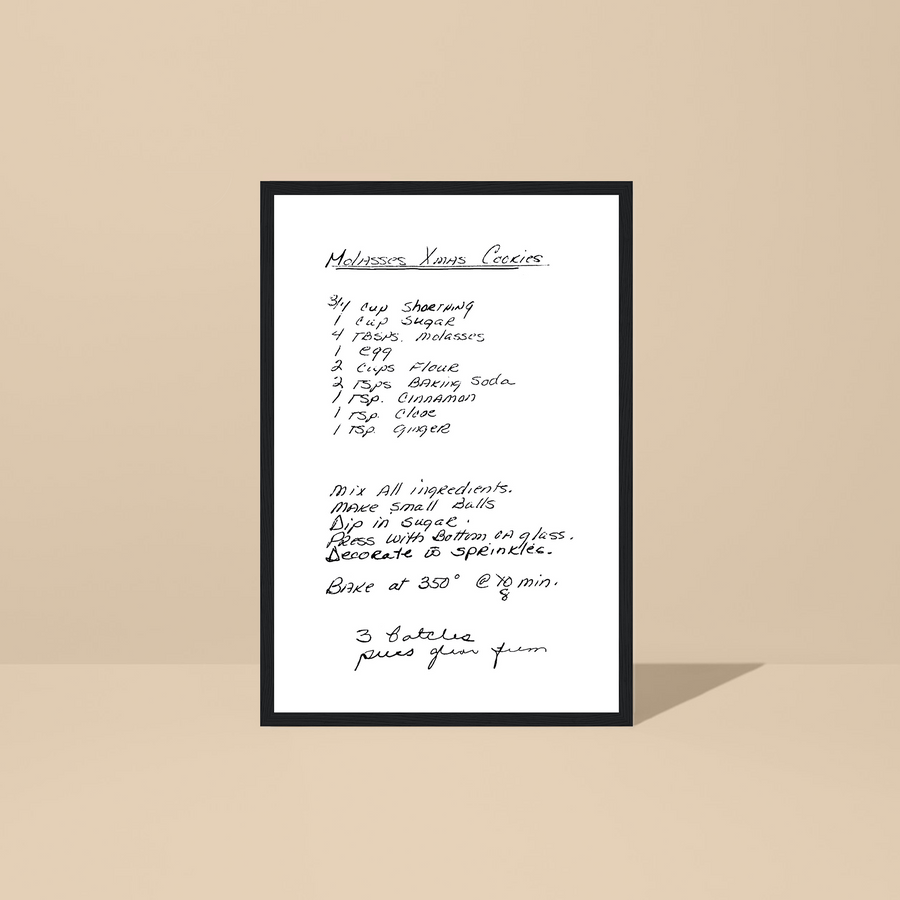 Molasses Xmas Cookies
3/4 cup Shorthing
1 cup Sugar
4 TBSPS. Molasses
1 egg
2 cups Flour
2 Tsps Baking Soda
1 Tsp. Cinnamon
1 Tsp. Clove
1 Tsp. Ginger
Mix All ingredients.
Make Small Balls
Dip in Sugar.
Press with Bottom of glass.
Decorate w̄ sprinkles.
Bake at 350° @ 10 min.
8
3 batches